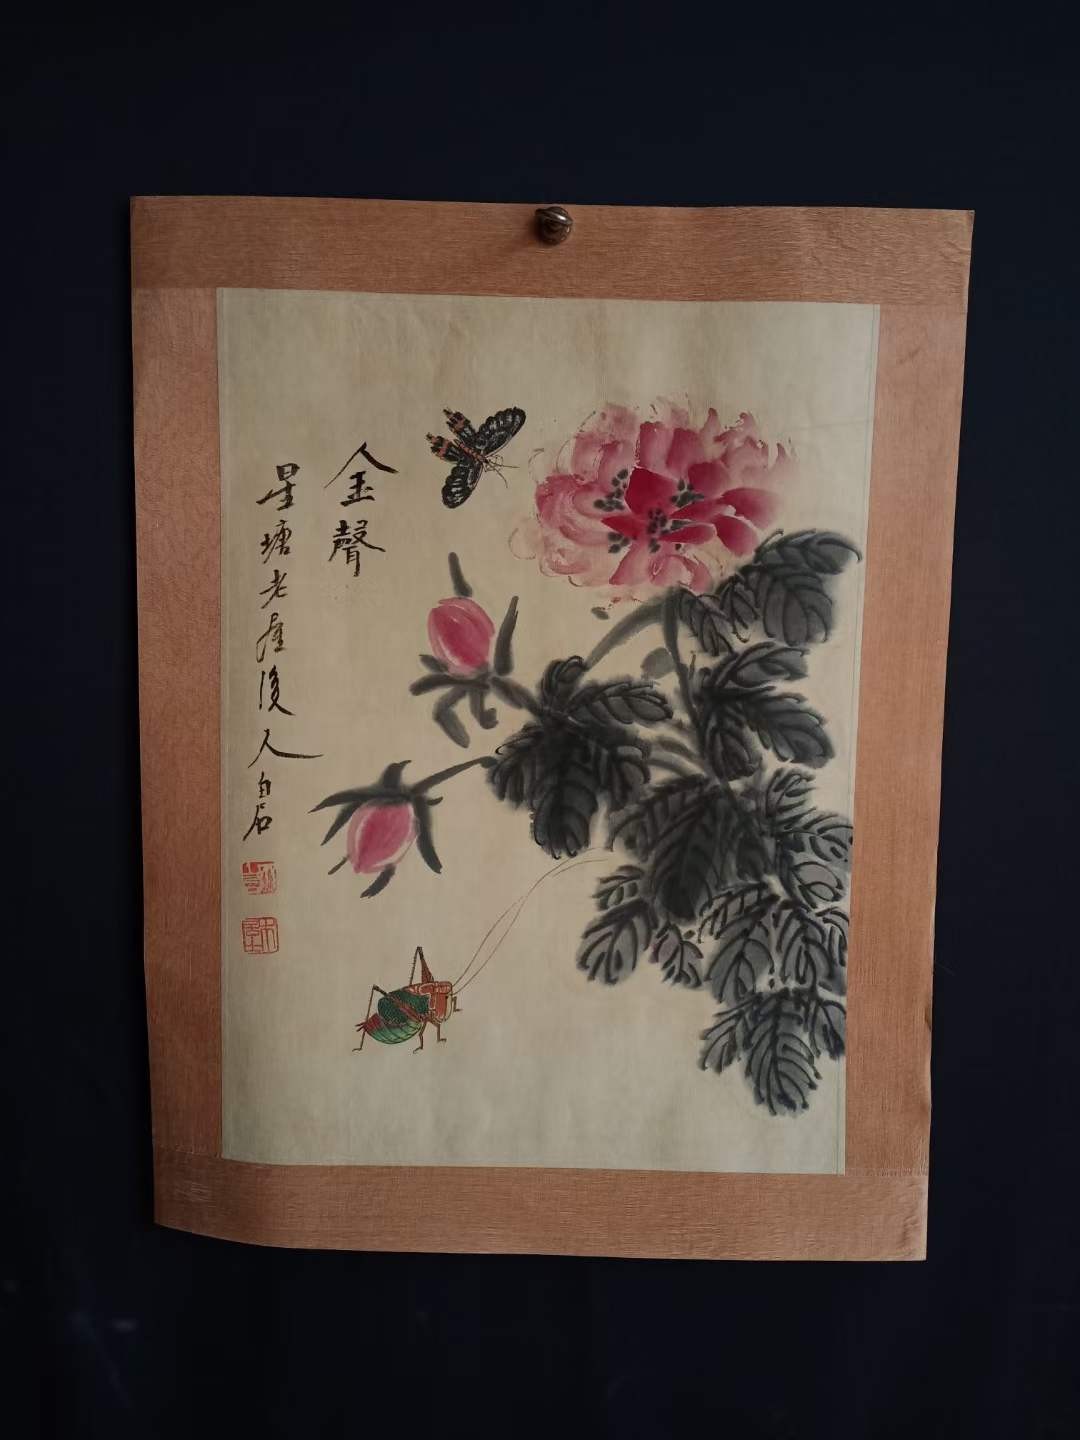 金聲
星塘老屋後人白石